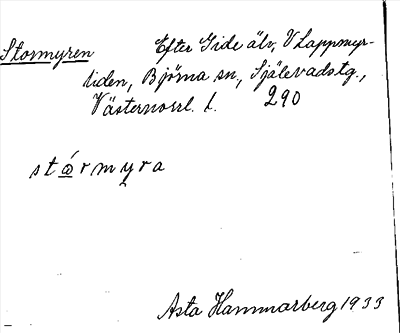 Stormyren Efter Gide älv, V Lappmyr-
tiden, Björna sn, Själevadstg.,
Västernorrl. l. 290
stώrmyra
Asta Hammarberg 1933